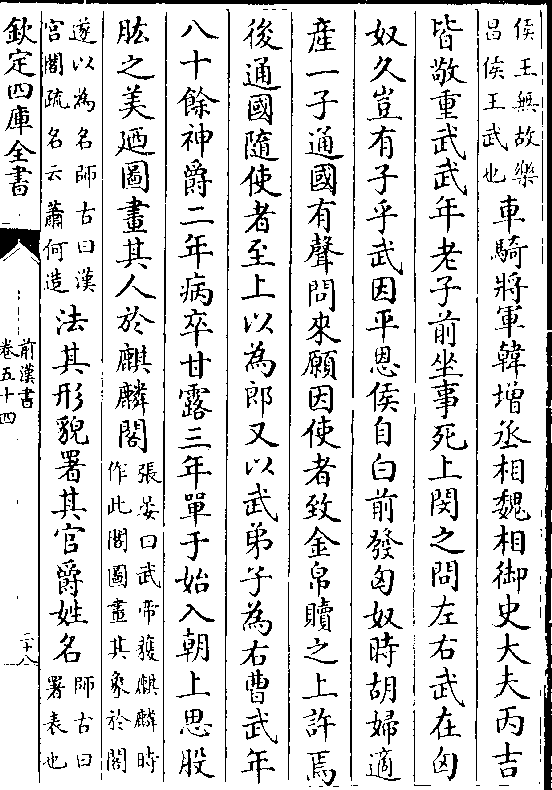 侯王無故樂
昌侯王武也
車騎將軍韓增丞相魏相御史大夫丙吉
皆敬重武武年老子前坐事死上閔之問左右武在匈
奴久豈有子乎武因平恩侯自白前發匈奴時胡婦適
產一子通國有聲問來願因使者致金帛贖之上許焉
後通國隨使者至上以為郎又以武弟子為右曹武年
八十餘神爵二年病卒甘露三年單于始入朝上思股
肱之美廼圖畫其人於麒麟閣
張晏曰武帝獲麒麟時
作此閣圖畫其象於閣
遂以為名師古曰漢
宮閣疏名云蕭何造
法其形貌署其官爵姓名
師古曰
署表也
欽定四庫全書
前漢書
卷五十四
二十八